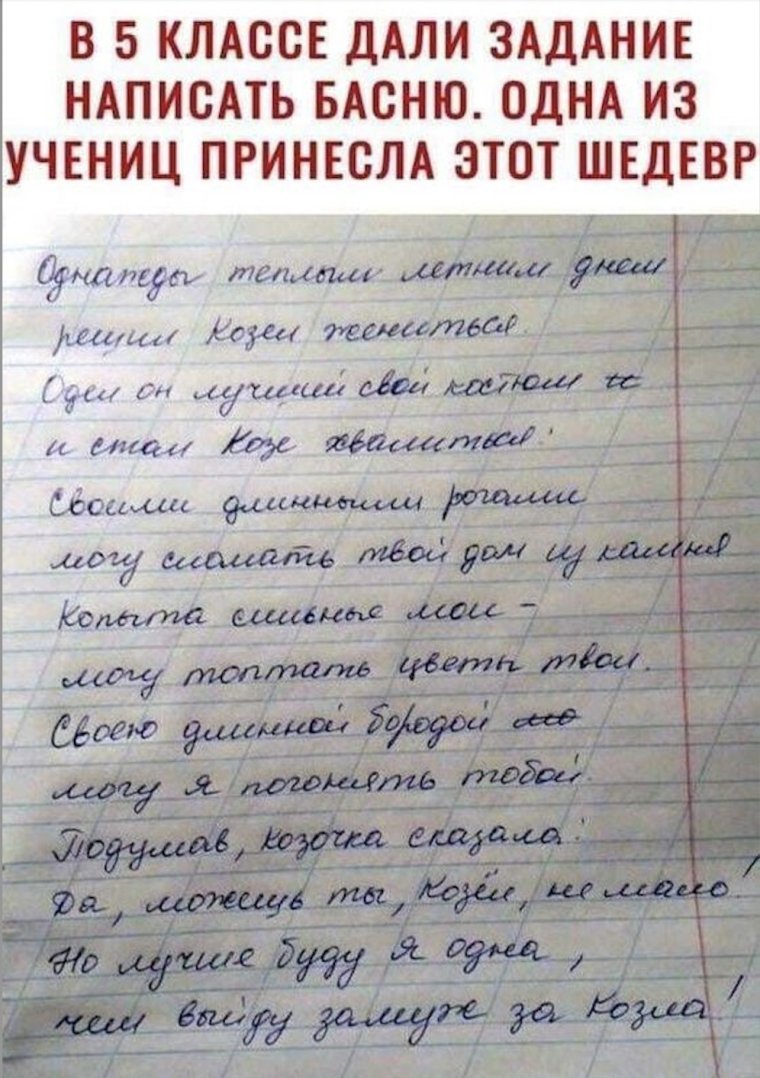 В 5 КЛАССЕ ДАЛИ ЗАДАНИЕ
НАПИСАТЬ БАСНЮ. ОДНА ИЗ
УЧЕНИЦ ПРИНЕСЛА ЭТОТ ШЕДЕВР
Однажды теплым летним днем
решил Козел жениться.
Одел он лучший свой костюм и
и стал Козе хвалиться:
Своими длинными рогами
могу сломать твой дом из камня
Копыта сильные мои –
могу топтать цветы твои.
Своею длинной бородой мо
могу я погонять тобой.
Подумав, Козочка сказала:
Да, можещь ты, Козёл, не мало!
Но лучше буду я одна,
чем выйду замуж за Козла!